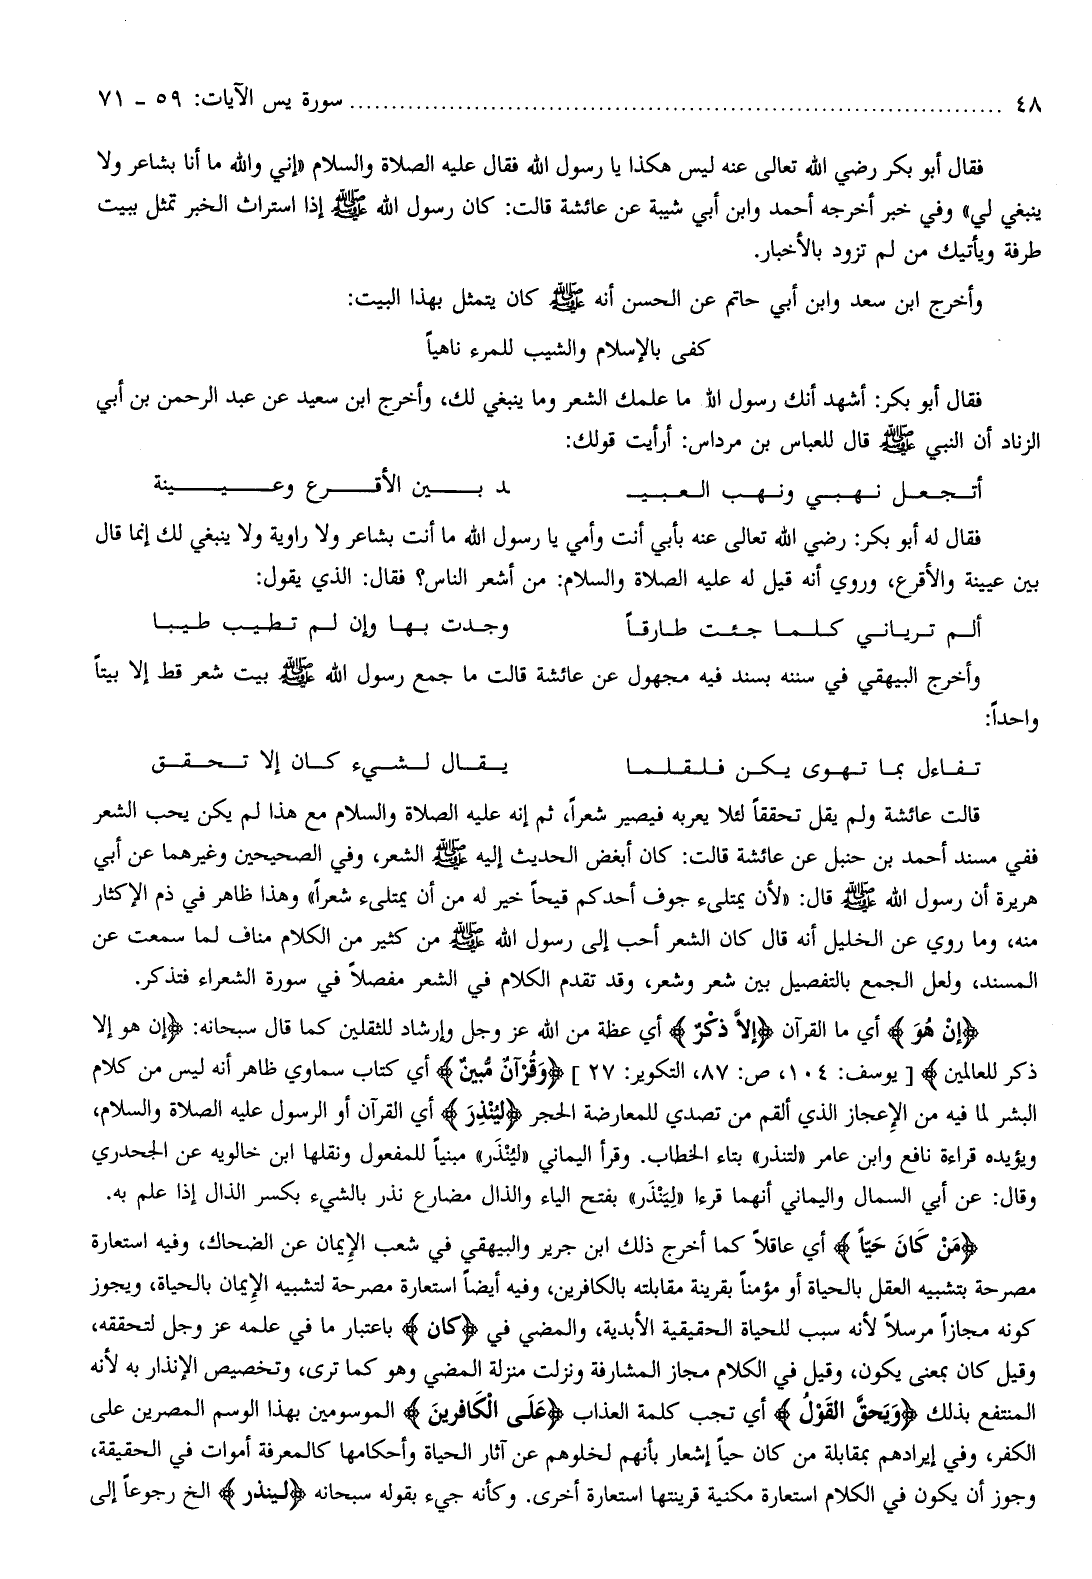 ٤٨ ........................................ سورة يس الآيات: ٥٩ ـ ٧١
فقال أبو بكر رضي الله تعالى عنه ليس هكذا يا رسول الله فقال عليه الصلاة والسلام «إني والله ما أنا بشاعر ولا
ينبغي لي» وفي خبر أخرجه أحمد وابن أبي شيبة عن عائشة قالت: كان رسول الله ﷺ إذا استراث الخبر تمثل ببيت
طرفة ويأتيك من لم تزود بالأخبار.
وأخرج ابن سعد وابن أبي حاتم عن الحسن أنه ﷺ كان يتمثل بهذا البيت:
كفى بالإسلام والشيب للمرء ناهياً
فقال أبو بكر: أشهد أنك رسول الله ما علمك الشعر وما ينبغي لك، وأخرج ابن سعيد عن عبد الرحمن بن أبي
الزناد أن النبي ﷺ قال للعباس بن مرداس: أرأيت قولك:
أتجعل نهبي ونهب العبيـ ـد بين الأقرع وعيينة
فقال له أبو بكر: رضي الله تعالى عنه بأبي أنت وأمي يا رسول الله ما أنت بشاعر ولا راوية ولا ينبغي لك إنما قال
بين عيينة والأقرع، وروي أنه قيل له عليه الصلاة والسلام: من أشعر الناس؟ فقال: الذي يقول:
ألم ترياني كلما جئت طارقاً وجدت بها وإن لم تطيب طيبا
وأخرج البيهقي في سننه بسند فيه مجهول عن عائشة قالت ما جمع رسول الله ﷺ بيت شعر قط إلا بيتاً
واحداً:
تفاءل بما تهوى يكن فلقلما يقال لشيء كان إلا تحقق
قالت عائشة ولم يقل تحققاً لئلا يعربه فيصير شعراً، ثم إنه عليه الصلاة والسلام مع هذا لم يكن يحب الشعر
ففي مسند أحمد بن حنبل عن عائشة قالت: كان أبغض الحديث إليه ﷺ الشعر، وفي الصحيحين وغيرهما عن أبي
هريرة أن رسول الله ﷺ قال: «لأن يمتلىء جوف أحدكم قيحاً خير له من أن يمتلىء شعراً» وهذا ظاهر في ذم الإكثار
منه، وما روي عن الخليل أنه قال كان الشعر أحب إلى رسول الله ﷺ من كثير من الكلام مناف لما سمعت عن
المسند، ولعل الجمع بالتفصيل بين شعر وشعر، وقد تقدم الكلام في الشعر مفصلاً في سورة الشعراء فتذكر.
﴿إنْ هُوَ﴾ أي ما القرآن ﴿إلاَّ ذكْرٌ﴾ أي عظة من الله عز وجل وإرشاد للثقلين كما قال سبحانه: ﴿إن هو إلا
ذكر للعالمين﴾ [يوسف: ١٠٤، ص: ٨٧، التكوير: ٢٧] ﴿وَقُرْآنٌ مُّبينٌ﴾ أي كتاب سماوي ظاهر أنه ليس من كلام
البشر لما فيه من الإعجاز الذي ألقم من تصدي للمعارضة الحجر ﴿لَيُنْذِرَ﴾ أي القرآن أو الرسول عليه الصلاة والسلام،
ويؤيده قراءة نافع وابن عامر «لتنذر» بتاء الخطاب. وقرأ اليماني «ليُنْذَر» مبنياً للمفعول ونقلها ابن خالويه عن الجحدري
وقال: عن أبي السمال واليماني أنهما قرءا «لِيَنْذَر» بفتح الياء والذال مضارع نذر بالشيء بكسر الذال إذا علم به.
﴿مَنْ كَانَ حَيّاً﴾ أي عاقلاً كما أخرج ذلك ابن جرير والبيهقي في شعب الإيمان عن الضحاك، وفيه استعارة
مصرحة بتشبيه العقل بالحياة أو مؤمناً بقرينة مقابلته بالكافرين، وفيه أيضاً استعارة مصرحة لتشبيه الإيمان بالحياة، ويجوز
كونه مجازاً مرسلاً لأنه سبب للحياة الحقيقية الأبدية، والمضي في ﴿كان﴾ باعتبار ما في علمه عز وجل لتحققه،
وقيل كان بمعنى يكون، وقيل في الكلام مجاز المشارفة ونزلت منزلة المضي وهو كما ترى، وتخصيص الإنذار به لأنه
المنتفع بذلك ﴿وَيَحقَّ القَوْلُ﴾ أي تجب كلمة العذاب ﴿عَلَى الْكَافرينَ﴾ الموسومين بهذا الوسم المصرين على
الكفر، وفي إيرادهم بمقابلة من كان حياً إشعار بأنهم لخلوهم عن آثار الحياة وأحكامها كالمعرفة أموات في الحقيقة،
وجوز أن يكون في الكلام استعارة مكنية قرينتها استعارة أخرى. وكأنه جيء بقوله سبحانه ﴿لينذر﴾ الخ رجوعاً إلى